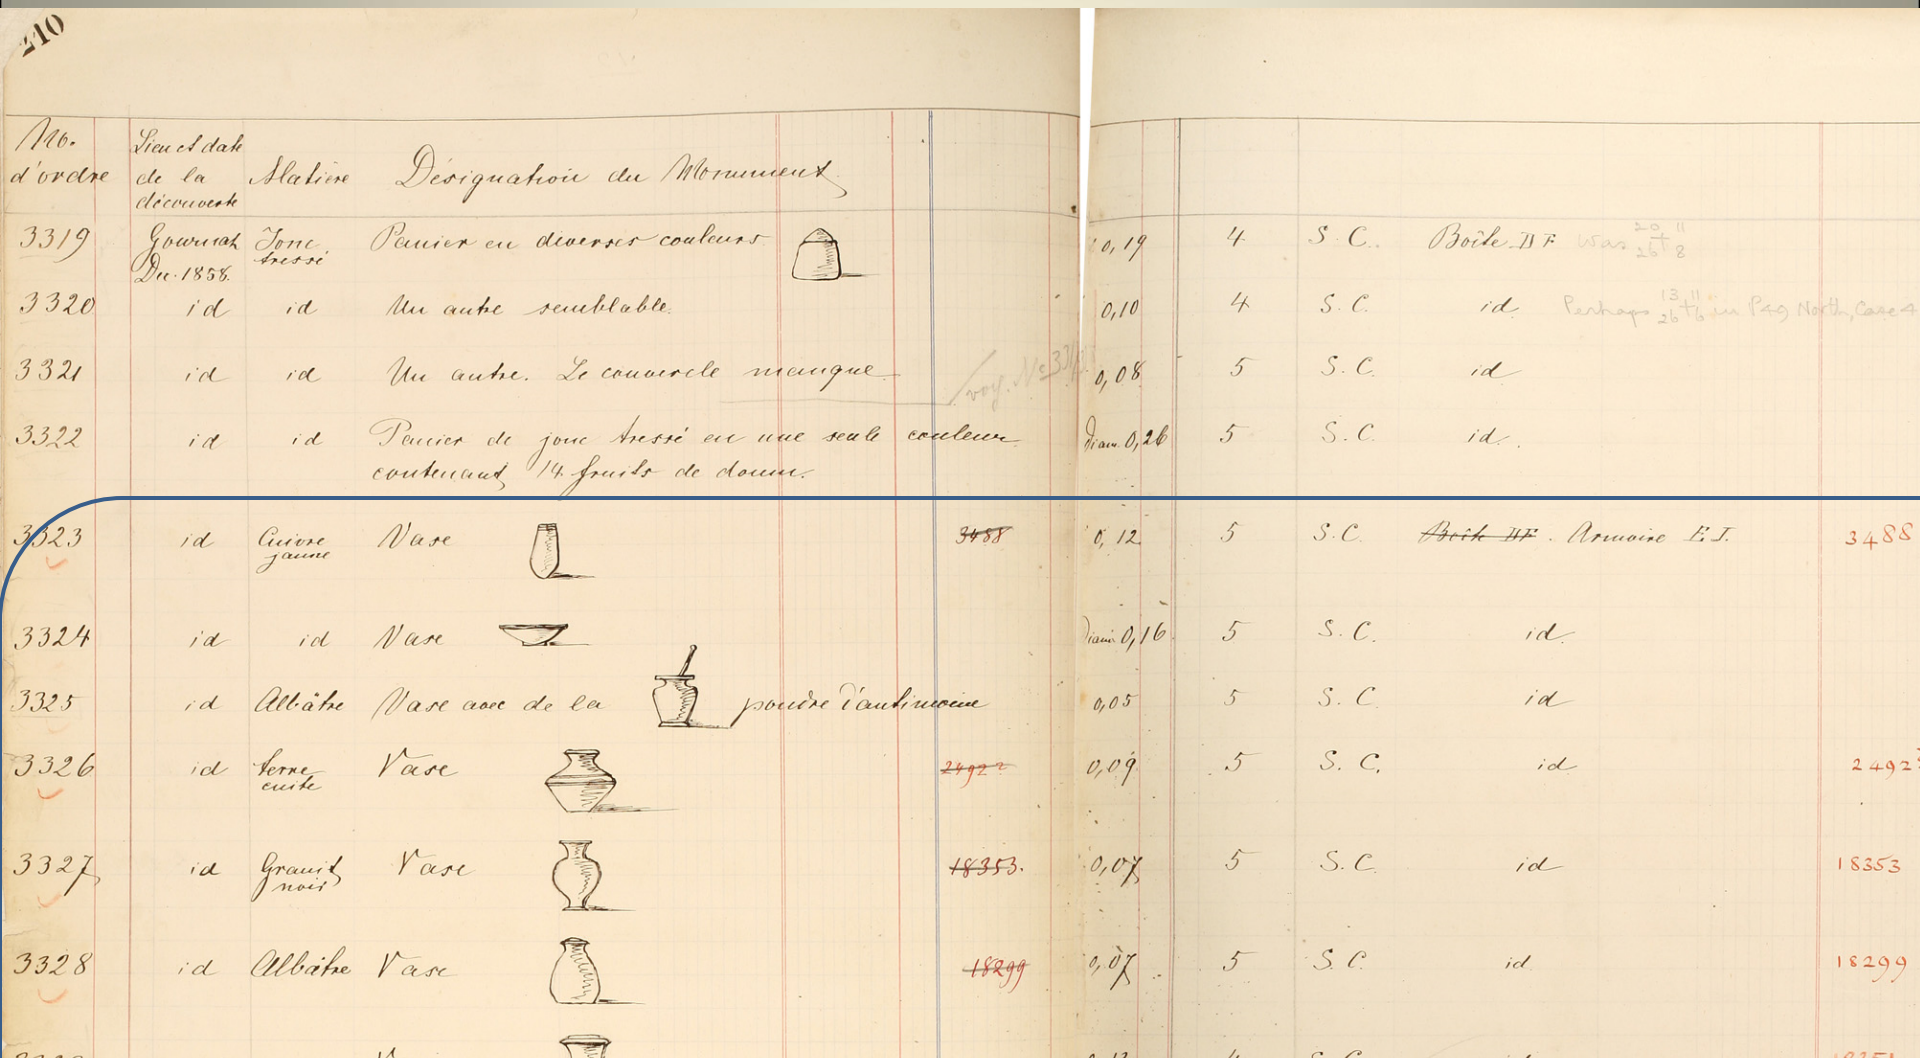 210
No. d'ordre Lieu et date de la découverte Matière Désignation du Monument
3319 Gournah Dec. 1858. Jonc tressé Panier en diverses couleurs. 0,19 4 S. C. Boîte DF was 20 11 26 8
3320 id id Un autre semblable. 0,10 4 S. C. id. Perhaps 13 11 26 6 in P49 North, Case 4
3321 id id Un autre. Le couvercle manque voy. No 0,08 5 S. C. id.
3322 id id Panier de jonc tressé en une seule couleur Diam. 0,26 5 S. C. id.
contenant 14 fruits de doum.
3323 id Cuivre jaune Vase 3488 0,12 5 S. C. Boîte DF. Armoire E I. 3488
3324 id id Vase Diam 0,16 5 S. C. id.
3325 id Albâtre Vase avec de la poudre d'antimoine 0,05 5 S. C. id
3326 id terre cuite Vase 2492? 0,09 5 S. C. id 2492?
3327 id Granit noir Vase 18353. 0,07 5 S. C. id 18353
3328 id Albâtre Vase 18299 0,07 5 S. C. id 18299